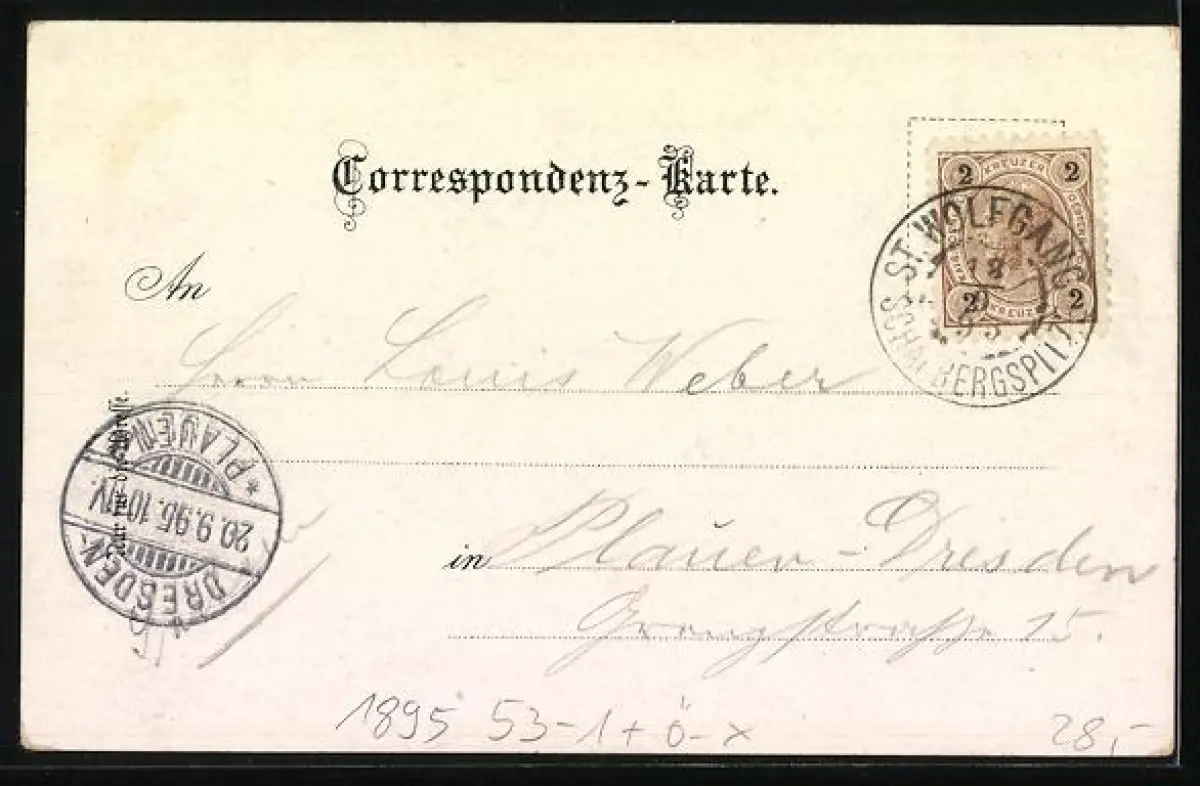 Correspondenz-Karte.
2 KREUZER 2
2 KREUZER 2
ST. WOLFGANG
18
9
95
SCHAFBERGSPITZE
An
Herrn Louis Weber
Nur für die Adresse.
PLAUEN
20.9.95.10-11V.
DRESDEN-
in Plauen-Dresden
straße 15.
1895 53-1+Ö-x
28,-